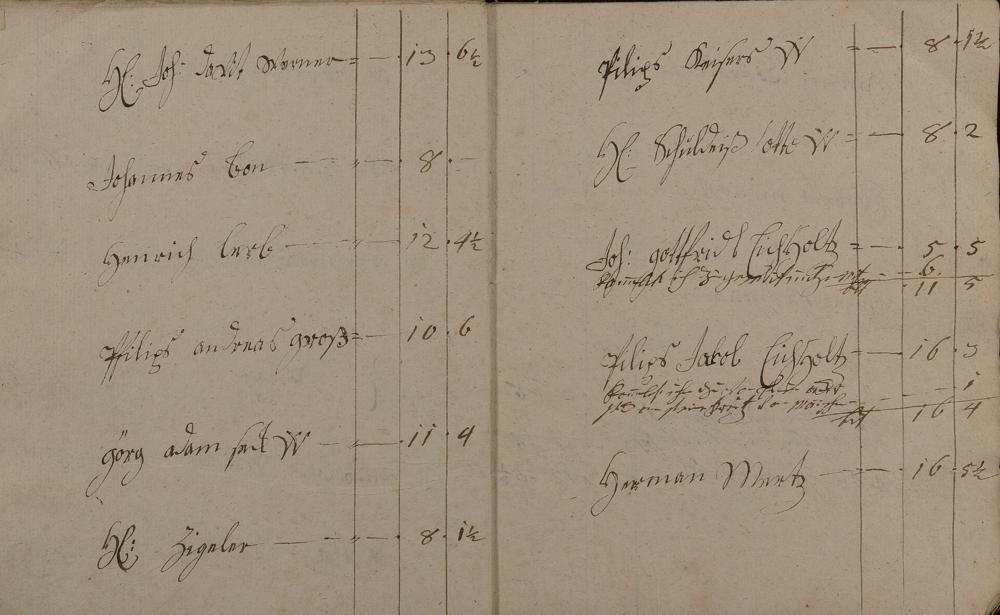 H: Joh: davit Werner = — 13 6½
Johannes bon — " — 8 —
Henrich lerb — " — 12 4½
Philips andreas groß = — 10 6
görg adam W — " — 11 4
H: Zigeler — " — 8 1½
Pilips Keisers W = — 8 1½
H: Schuldeiß W = — 8 2
Joh: gottfrid Eichholtz = — 5 5
— 6
11 5
Pilips Jakob Eichholtz — 16 3
— 1
16 4
Herman Mertz — 16 5½